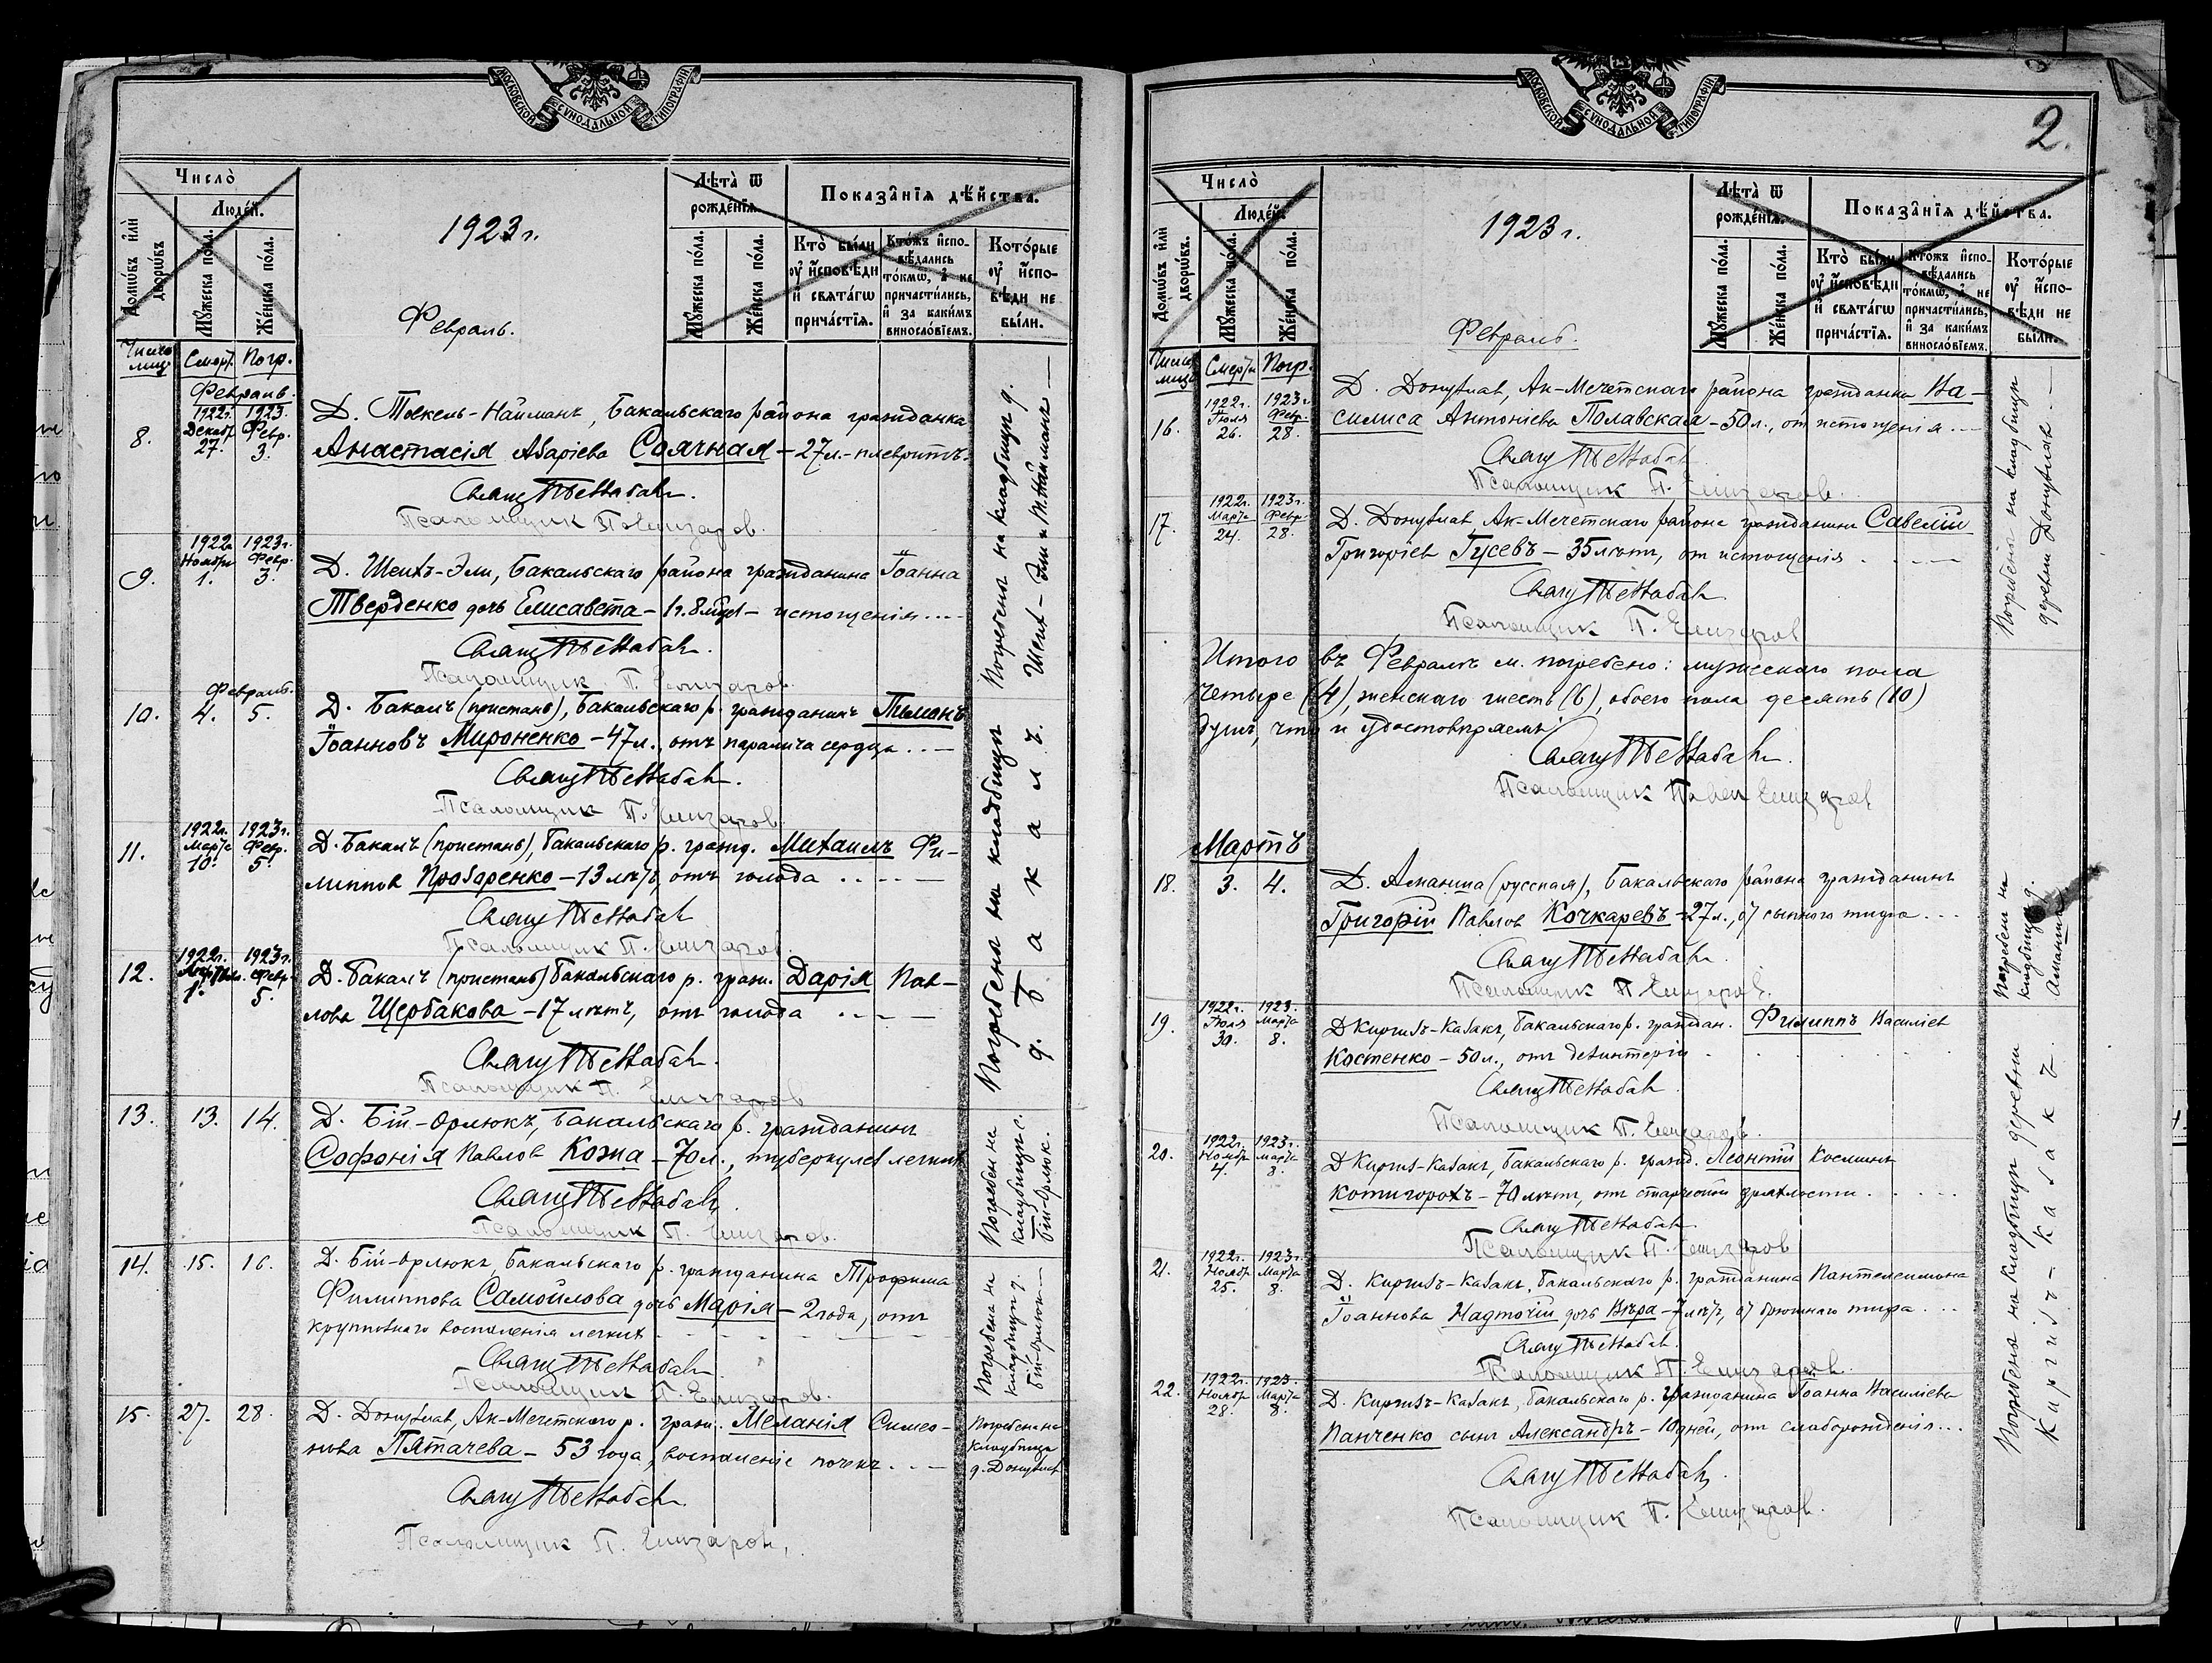 МОСКОВСКОЙ СѴНОДАЛЬНОЙ ТИПОГРАФІИ
Число̀
Людéй.
Домѡ́въ и҆лѝ дворѡ́въ
Мꙋ́жеска по́ла.
Же́нска по́ла.
1923 г.
Февраль.
Лѣ́та ѿ рожде́нїѧ.
Мꙋ́жеска по́ла.
Же́нска по́ла.
Показа̑нїѧ дѣ́йства.
Кто̀ бы́ли ᲂу҆ и҆сповѣ́ди и҆ свѧта́гѡ прича́стїѧ.
Кто́жъ и҆спо-
вѣ́дались то́кмѡ, а҆ не причасти́лись, и҆ за каки́мъ винословїемъ.
Кото́рые ᲂу҆ и҆спо-
вѣ́ди не бы́ли.
Число лицъ
Смерт. Погр.
Февраль.
8.
1922 г. Декабр. 27.
1923 Февр. 3.
Д. Токель-Найманъ, Бакальскаго района гражданка
Анастасія Азаріева Соячная - 27 л. - плевритъ.
Свящ
Псаломщик П. Елизаров.
9.
1922 Ноября 1.
1923 г. Февр. 3.
Д. Шеихъ-Эли, Бакальскаго района гражданина Іоанна
Тверденко дочь Елисавета - 1 г. 8 мцев - истощенія ...
Свящ
Псаломщик П. Елизаров.
Погребены на кладбищѣ д. Шеих-Эли и Т. Найманъ
Февраль.
10.
4.
5.
Д. Бакалъ (пристань), Бакальскаго р. гражданинъ Пимонъ
Іоанновъ Мироненко - 47 л., отъ паралича сердца ...
Свящ
Псаломщик П. Елизаров.
11.
1922 г. Марта 10.
1923 г. Февр. 5.
Д. Бакалъ (пристань), Бакальскаго р. гражд. Михаилъ Фи-
липпов Прозаренко - 13 лѣтъ, отъ голода ....
Свящ
Псаломщик П. Елизаров.
12.
1922 г. 1.
1923 г. Февр. 5.
Д. Бакалъ (пристань) Бакальскаго р. граж. Дарія Пав-
лова Щербакова - 17 лѣтъ, отъ голода
Свящ
Псаломщик П. Елизаров
Погребены на кладбищѣ д. Бакалъ.
13.
13.
14.
Д. Бій-Орлюкъ, Бакальскаго р. гражданинъ
Софонія Павлов Кожа - 70 л., туберкулез легких
Свящ
Псаломщик П. Елизаров.
Погребен на кладбищѣ с. Бій-Орлюк.
14.
15.
16.
Д. Бій-Орлюкъ, Бакальскаго р. гражданина Трофима
Филиппова Самойлова дочь Марія - 2 года, отъ
крупознаго воспаленія легких
Свящ
Псаломщик П. Елизаров.
Погребена на кладбищѣ д. Бій-Орлюк
15.
27.
28.
Д. Донузлав, Ак-Мечетскаго р. граж. Меланія Симео-
нова Пятачева - 53 года, воспаленіе почекъ ..
Свящ
Псаломщик П. Елизаров,
Погребена на кладбищѣ д. Донузлав
МОСКОВСКОЙ СѴНОДАЛЬНОЙ ТИПОГРАФІИ
2.
Число̀
Людéй.
Домѡ́въ и҆лѝ дворѡ́въ.
Мꙋ́жеска по́ла.
Же́нска по́ла.
1923 г.
Февраль.
Лѣ́та ѿ рожде́нїѧ.
Мꙋ́жеска по́ла.
Же́нска по́ла.
Показа̑нїѧ дѣ́йства.
Кто̀ бы́ли ᲂу҆ и҆сповѣ́ди и҆ свѧта́гѡ прича́стїѧ.
Кто́жъ и҆спо-
вѣ́дались то́кмѡ, а҆ не причасти́лись, и҆ за каки́мъ винословїемъ.
Кото́рые ᲂу҆ и҆спо-
вѣ́ди не бы́ли.
Число лицъ
Смерти Погр.
16.
1922 г. Іюля 26.
1923 г. Февр. 28.
Д. Донузлав, Ак-Мечетскаго района гражданка Ва-
силиса Антоніева Полавская - 50 л., от истощенія ...
Свящ
Псаломщик П. Елизаров.
17.
1922 г. Марта 24.
1923 г. Февр. 28.
Д. Донузлав, Ак-Мечетскаго района гражданин Савелій
Григоріев Гусевъ - 35 лѣтъ, от истощенія . .
Свящ
Псаломщик П. Елизаров
Погребены на кладбищѣ деревни Донузлав.
Итого въ Февралѣ м. погребено: мужескаго пола
четыре (4), женскаго шесть (6), обоего пола десять (10)
душъ, что и удостовѣряемъ
Свящ
Псаломщик Павел Елизаров
Мартъ
18.
3.
4.
Д. Аманша (русская), Бакальскаго района гражданинъ
Григорій Павлов Кочкаревъ - 27 л., от сыпного тифа ...
Свящ
Псаломщик П. Елизаров.
Погребен на кладбищѣ д.
19.
1922 г. Іюля 30.
1923. Марта 8.
Д Киргизъ-Казакъ, Бакальскаго р. граждан. Филиппъ Василіев
Костенко - 50 л., отъ дезинтеріи
Свящ
Псаломщик П. Елизаров.
20.
1922 г. Ноябр. 4.
1923 г. Марта 8.
Д Киргиз-Казакъ, Бакальскаго р. гражд. Леонтій Косминъ
Котигорохъ - 70 лѣтъ, отъ старческой дряхлости . . . .
Свящ
Псаломщик П. Елизаров
21.
1922 г. Ноябр. 25.
1923 г. Марта 8.
Д. Киргизъ-Казакъ, Бакальскаго р. гражданина Пантелеимона
Іоаннова Надточій дочь Вѣра - 7 лѣтъ, от брюшного тифа ...
Свящ
Псаломщик П. Елизаров.
22.
1922 г. Ноябр. 28.
1923. Марта 8.
Д. Киргизъ-Казакъ, Бакальскаго р. гражданина Іоанна Василіева
Панченко сынъ Александръ - 10 дней, отъ слаборожденія ...
Свящ
Псаломщик П. Елизаров.
Погребены на кладбищѣ деревни Киргизъ-Казакъ.